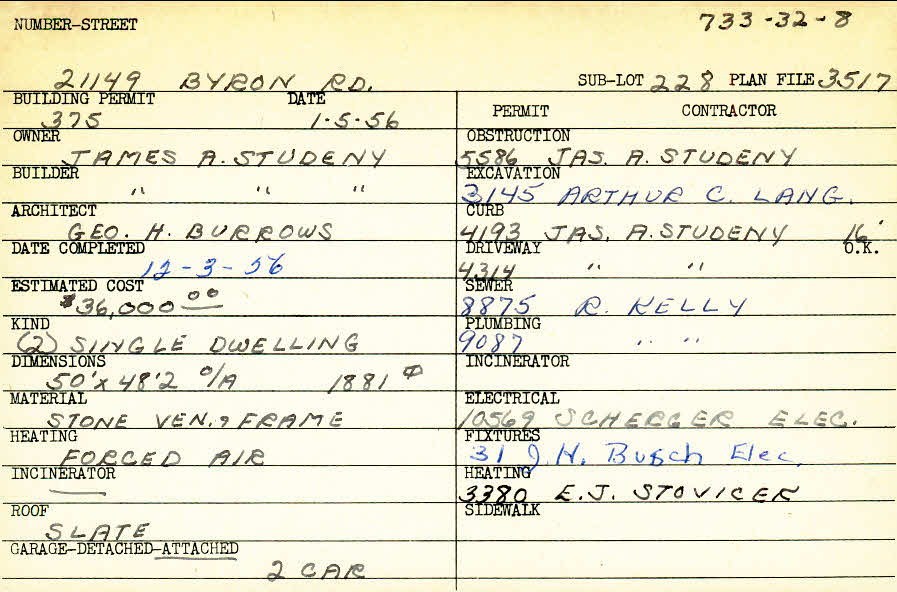 NUMBER-STREET 733-32-8
21149 BYRON RD. SUB-LOT 228 PLAN FILE 3517
BUILDING PERMIT DATE
375 1-5-56
OWNER
JAMES A. STUDENY
BUILDER
" " "
ARCHITECT
GEO. H. BURROWS
DATE COMPLETED
12-3-56
ESTIMATED COST
$36,000 00
KIND
(2) SINGLE DWELLING
DIMENSIONS
50'x 48'2 O/A 1881
MATERIAL
STONE VEN. & FRAME
HEATING
FORCED AIR
INCINERATOR
ROOF
SLATE
GARAGE-DETACHED-ATTACHED
2 CAR
PERMIT CONTRACTOR
OBSTRUCTION
5586 JAS. A. STUDENY
EXCAVATION
3145 ARTHUR C. LANG.
CURB
4193 JAS. A. STUDENY 16'
DRIVEWAY O.K.
4314 " "
SEWER
8875 R. KELLY
PLUMBING
9087 " "
INCINERATOR
ELECTRICAL
10569 SCHERGER ELEC.
FIXTURES
31 J.H. Busch Elec.
HEATING
3380 E.J. STOVICEK
SIDEWALK